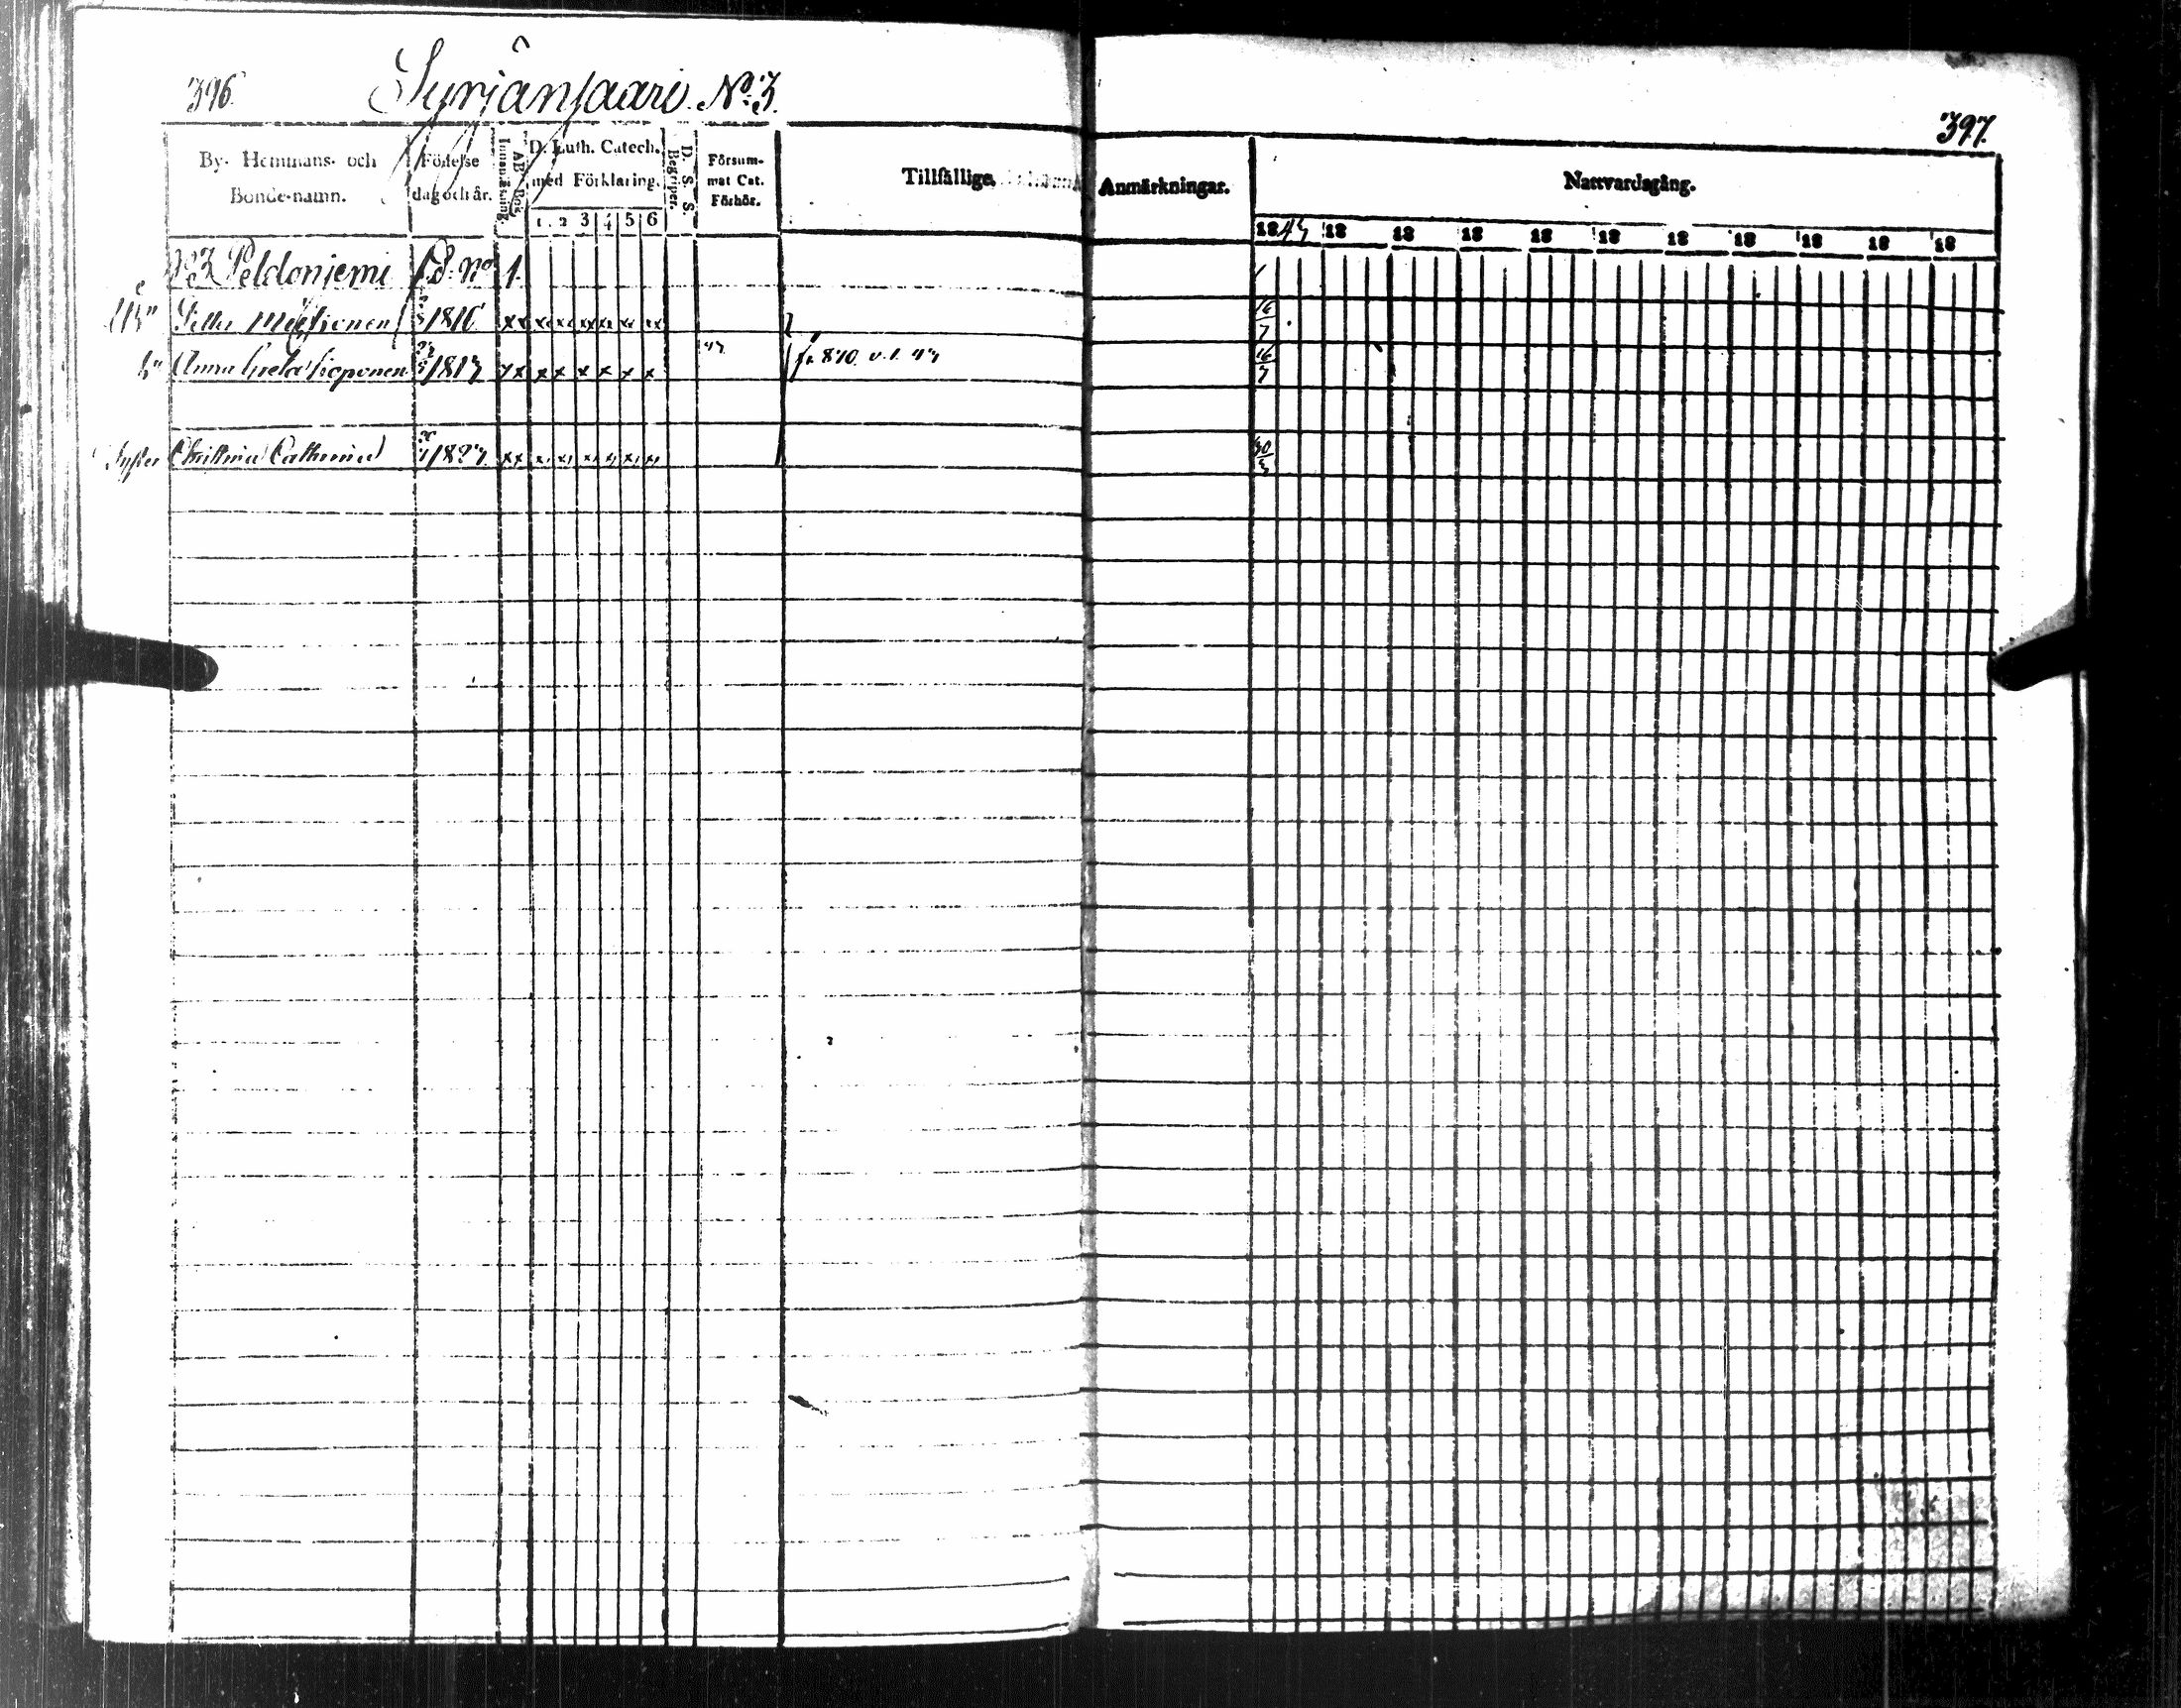 396.
Syrjänsaari. No. 3.
397.
By- Hemmans- och
Bonde-namn.
Födelse
dag och år.
AB-Bok
Innanläsning.
D. Luth. Catech.
med Förklaring.
1. 2 3 4 5 6
D. S. S.
Begreper.
Försum-
mat Cat.
Förhör.
Tillfällige
Anmärkningar.
Nattvardsgång.
1843 18 18 18 18 18 18 18 18 18 18
No 3 Peldoniemi No 1.
1816 xx xx xx xx xx xx xx 16/7
Anna Greta 1813 xx x x x x x x 43 fr 870. 43 16/7
Syster Christina Catharina 1823 xx 30/3